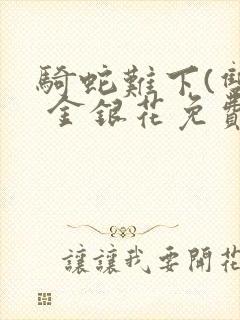 騎蛇難下(雙
金銀花免費
讓讓我要開花